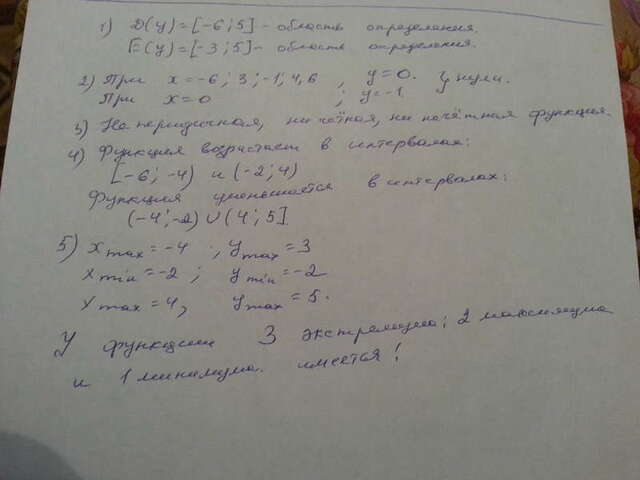 1) D(y) = [-6; 5] - область определения.
E(y) = [-3; 5] - область определения.
2) При x = -6; 3; -1; 4,6 , y = 0. нули.
При x = 0 ; y = -1
3) Не периодичная, ни чётная, ни нечётная функция.
4) Функция возрастает в интервалах:
[-6; -4) и (-2; 4)
Функция уменьшается в интервалах:
(-4; -2) ∪ (4; 5]
5) x max = -4 ; y max = 3
x min = -2 ; y min = -2
x max = 4, y max = 5.
У функции 3 экстремума; 2 максимума
и 1 минимума. имеется!